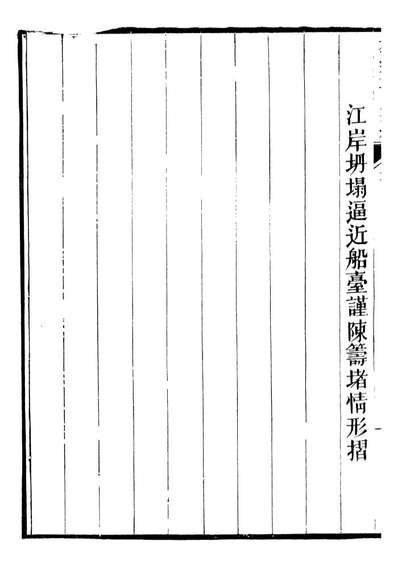 江岸坍塌逼近船臺謹陳籌堵情形摺